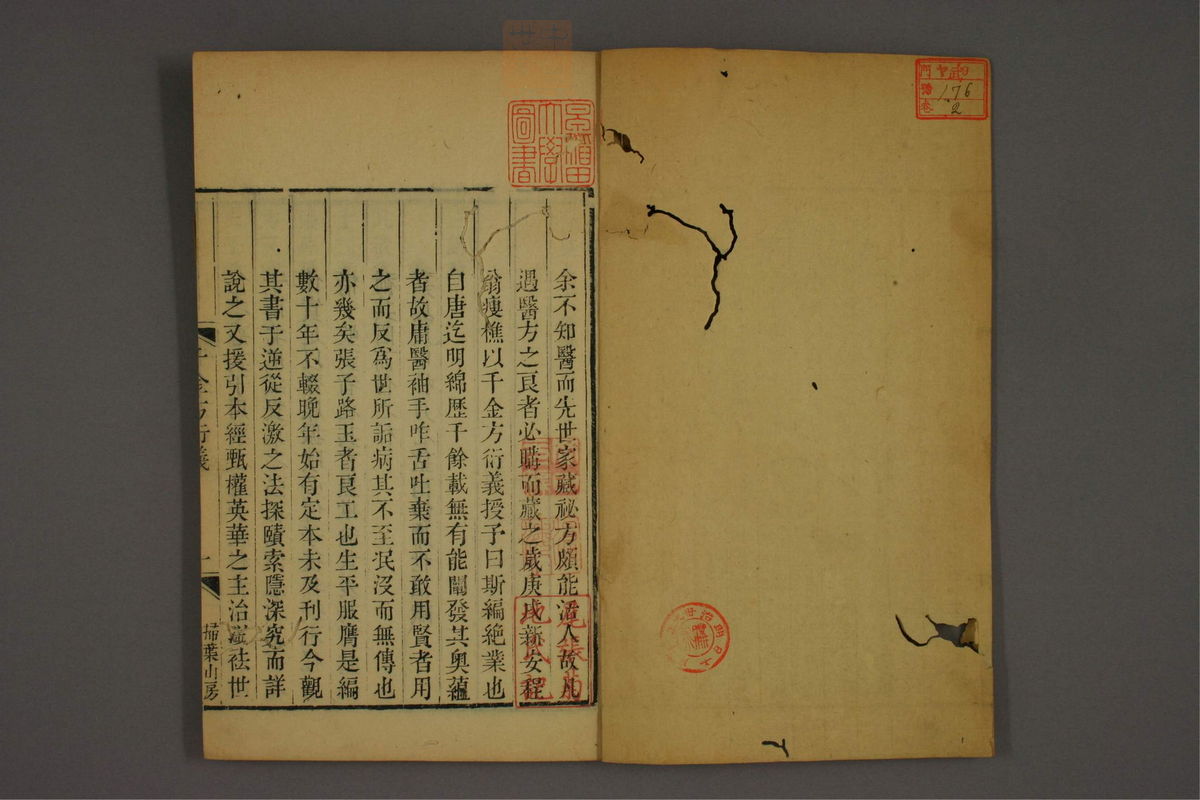 門 ヤ09
號 176
卷 2
早稲田大學圖書
余不知醫而先世家藏祕方頗能活人故凡
遇醫方之良者必購而藏之歲庚戌新安程
翁瘦樵以千金方衍義授予曰斯編絶業也
自唐迄明綿歷千餘載無有能闡發其奧蘊
者故庸醫袖手咋舌吐棄而不敢用賢者用
之而反爲世所詬病其不至泯沒而無傳也
亦幾矣張子路玉者良工也生平服膺是編
數十年不輟晚年始有定本未及刊行今觀
其書于逆從反激之法探賾索隱深究而詳
說之又援引本經甄權英華之主治激祛世
千金方衍義
一
掃葉山房